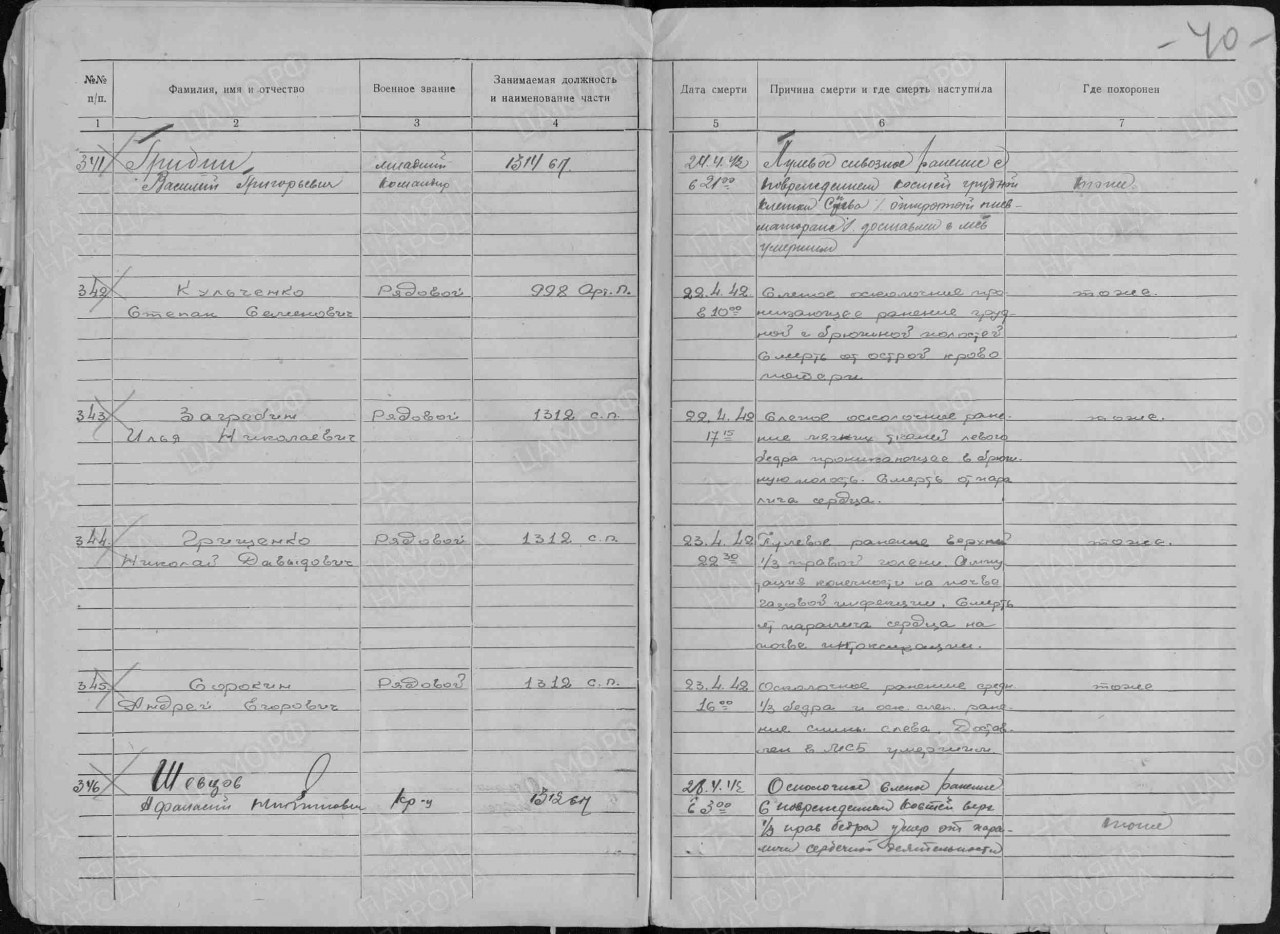 - 40 -
№№ п/п.
Фамилия, имя и отчество
Военное звание
Занимаемая должность и наименование части
Дата смерти
Причина смерти и где смерть наступила
Где похоронен
1 2 3 4 5 6 7
341 Гридин младший 1314 24.4.42 Пулевое сквозное ранение с
Василий Григорьевич командир в 21 00 повреждением костей грудной тоже
клетки слева
доставлен в МСБ
умершим
342 Кульченко Рядовой 998 Арт. П. 22.4.42 Слепое осколочное про- тоже.
Степан Семенович в 10 00 никающее ранение груд-
ной и брюшной полостей
Смерть от острой крово
потери
343 Заграбин Рядовой 1312 с.п. 22.4.42 Слепое осколочное ране- тоже.
Илья Николаевич 17 15 ние мягких тканей левого
бедра проникающее в брюш-
ную полость. Смерть от пара
лича сердца.
344. Грищенко Рядовой 1312 с.п. 23.4.42 Пулевое ранение верхней тоже.
Николай Давыдович 22 30 1/3 правой голени. Ампу
тация конечности на почве
газовой инфекции. Смерть
от паралича сердца на
почве интоксикации.
345. Сорокин Рядовой 1312 с.п. 23.4.42 Осколочное ранение средн тоже
Андрей Егорович 16 00 1/3 бедра и оск. слеп. ране-
ние спины слева. Достав-
лен в МСБ умершим.
346 Шевцов 1312 Осколочное слепое ранение
Афанасий Кр-ц в 3 00 с повреждением костей верх
1/3 прав бедра умер от пара- тоже
лича сердечной деятельности